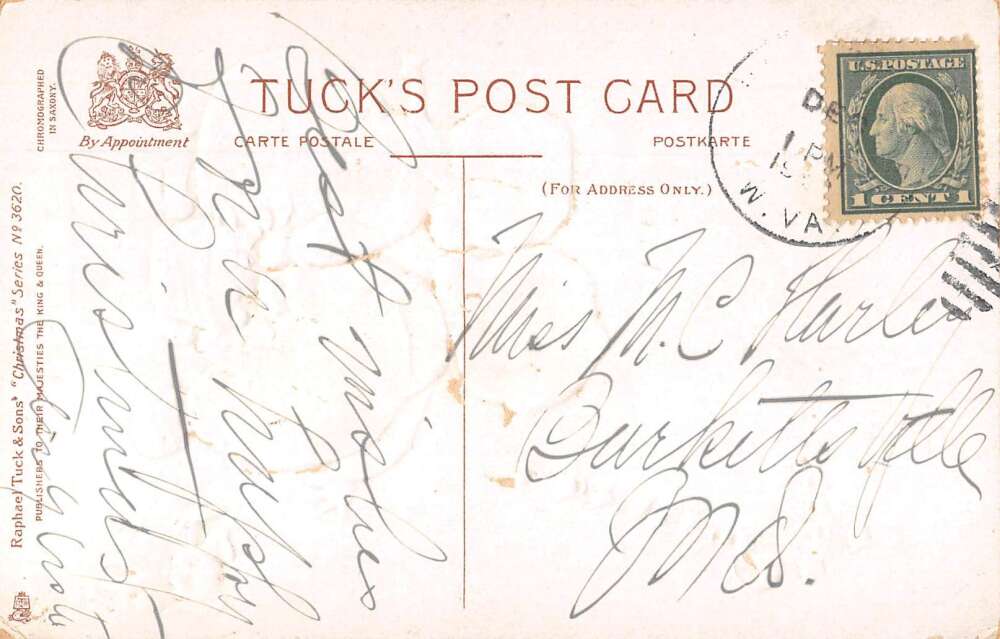 TUCK'S POST CARD
CARTE POSTALE
POSTKARTE
(FOR ADDRESS ONLY.)
By Appointment
CHROMOGRAPHED
IN SAXONY.
Raphael Tuck & Sons' "Christmas" Series Nº 3620.
PUBLISHERS TO THEIR MAJESTIES THE KING & QUEEN.
U.S. POSTAGE
1 CENT 1
DEC
PM
W. VA.
Best wishes
for a happy
Christmas
Miss M. C. Hurley
Burkittsville
Md.